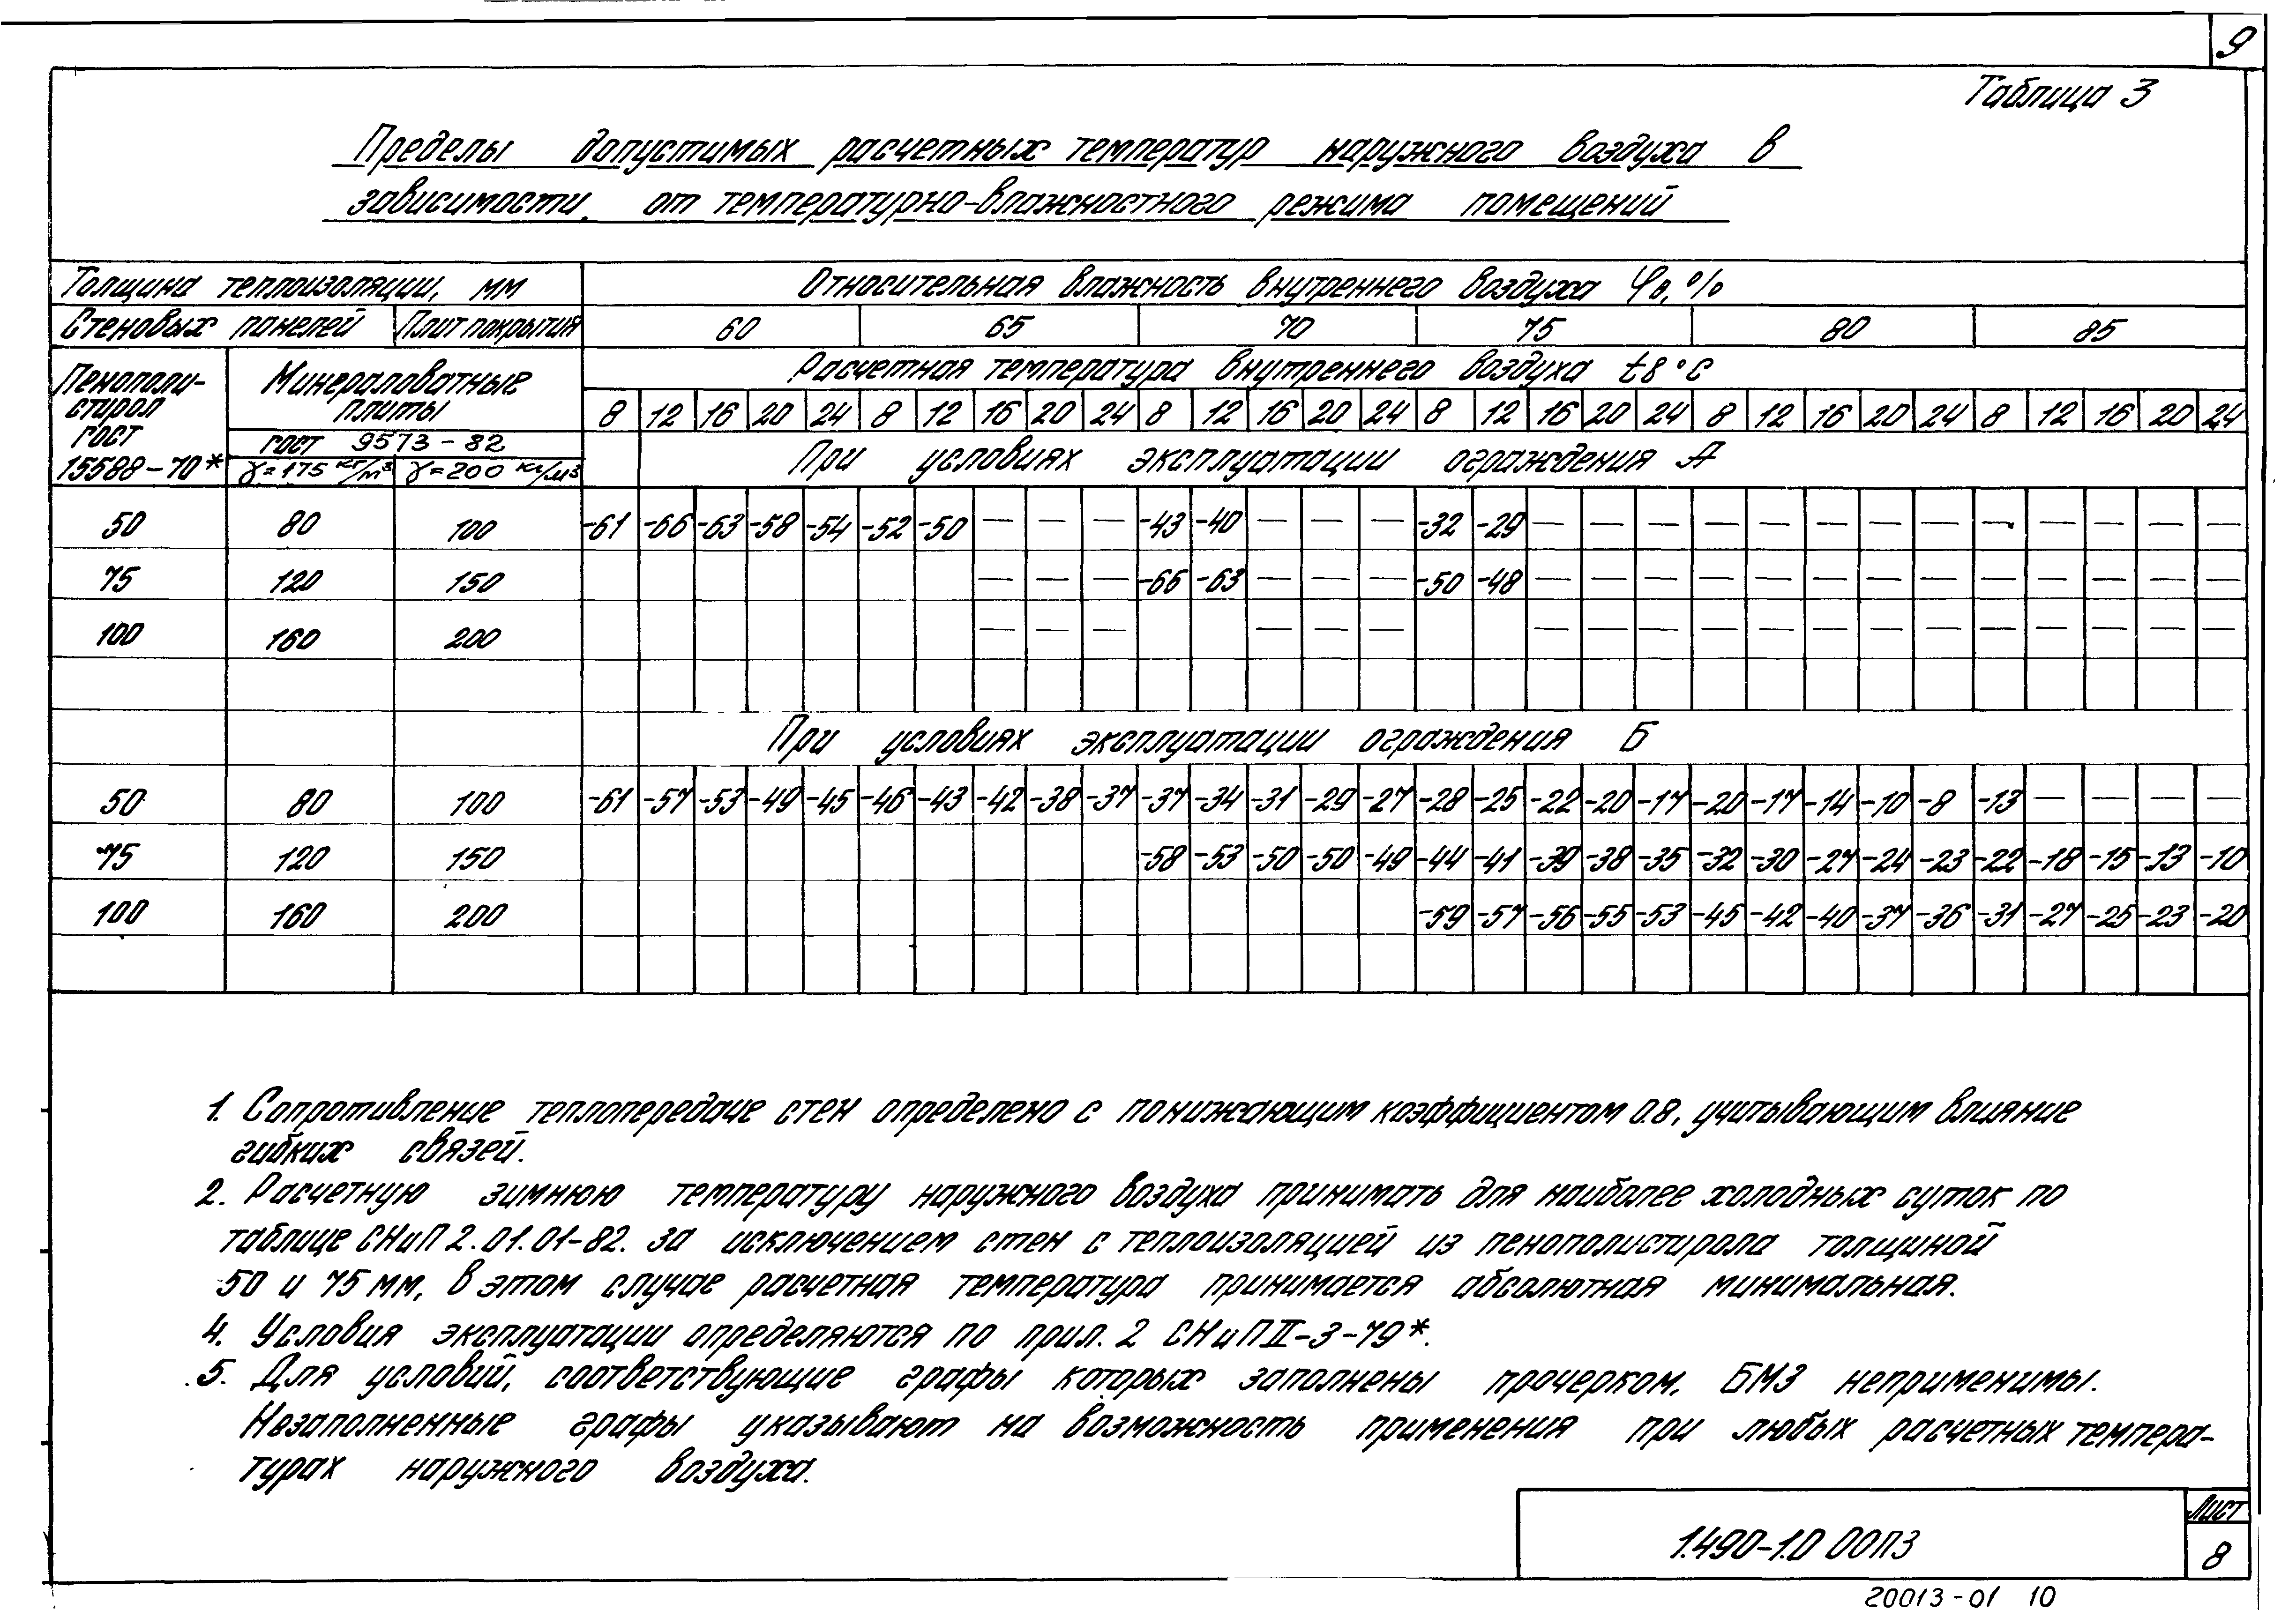 9
Таблица 3
Пределы допустимых расчетных температур наружного воздуха в
зависимости от температурно-влажностного режима помещений
Толщина теплоизоляции, мм Относительная влажность внутреннего воздуха φв,%
Стеновых панелей Плит покрытия 60 65 70 75 80 85
Пенополи-
стирол
ГОСТ
15588-70*
Минераловатные
плиты
ГОСТ 9573-82
γ=175 кг/м³ γ=200 кг/м³
Расчетная температура внутреннего воздуха tв °С
8 12 16 20 24 8 12 16 20 24 8 12 16 20 24 8 12 16 20 24 8 12 16 20 24 8 12 16 20 24
При условиях эксплуатации ограждения А
50 80 100 -61 -66 -63 -58 -54 -52 -50 — — — -43 -40 — — — -32 -29 — — — — — — — — — — — — —
75 120 150 — — — -66 -63 — — — -50 -48 — — — — — — — — — — — — —
100 160 200 — — — — — — — — — — — — — — — — — — —
При условиях эксплуатации ограждения Б
50 80 100 -61 -57 -53 -49 -45 -46 -43 -42 -38 -37 -37 -34 -31 -29 -27 -28 -25 -22 -20 -17 -20 -17 -14 -10 -8 -13 — — — —
75 120 150 -58 -53 -50 -50 -49 -44 -41 -39 -38 -35 -32 -30 -27 -24 -23 -22 -18 -15 -13 -10
100 160 200 -59 -57 -56 -55 -53 -45 -42 -40 -37 -36 -31 -27 -25 -23 -20
1. Сопротивление теплопередаче стен определено с понижающим коэффициентом 0.8, учитывающим влияние
гибких связей.
2. Расчетную зимнюю температуру наружного воздуха принимать для наиболее холодных суток по
таблице СНиП 2.01.01-82. за исключением стен с теплоизоляцией из пенополистирола толщиной
50 и 75 мм, в этом случае расчетная температура принимается абсолютная минимальная.
4. Условия эксплуатации определяются по прил. 2 СНиП II-3-79*.
5. Для условий, соответствующие графы которых заполнены прочерком, БМЗ неприменимы.
Незаполненные графы указывают на возможность применения при любых расчетных темпера-
турах наружного воздуха.
1.490-1.0 00ПЗ
Лист
8
20013-01 10